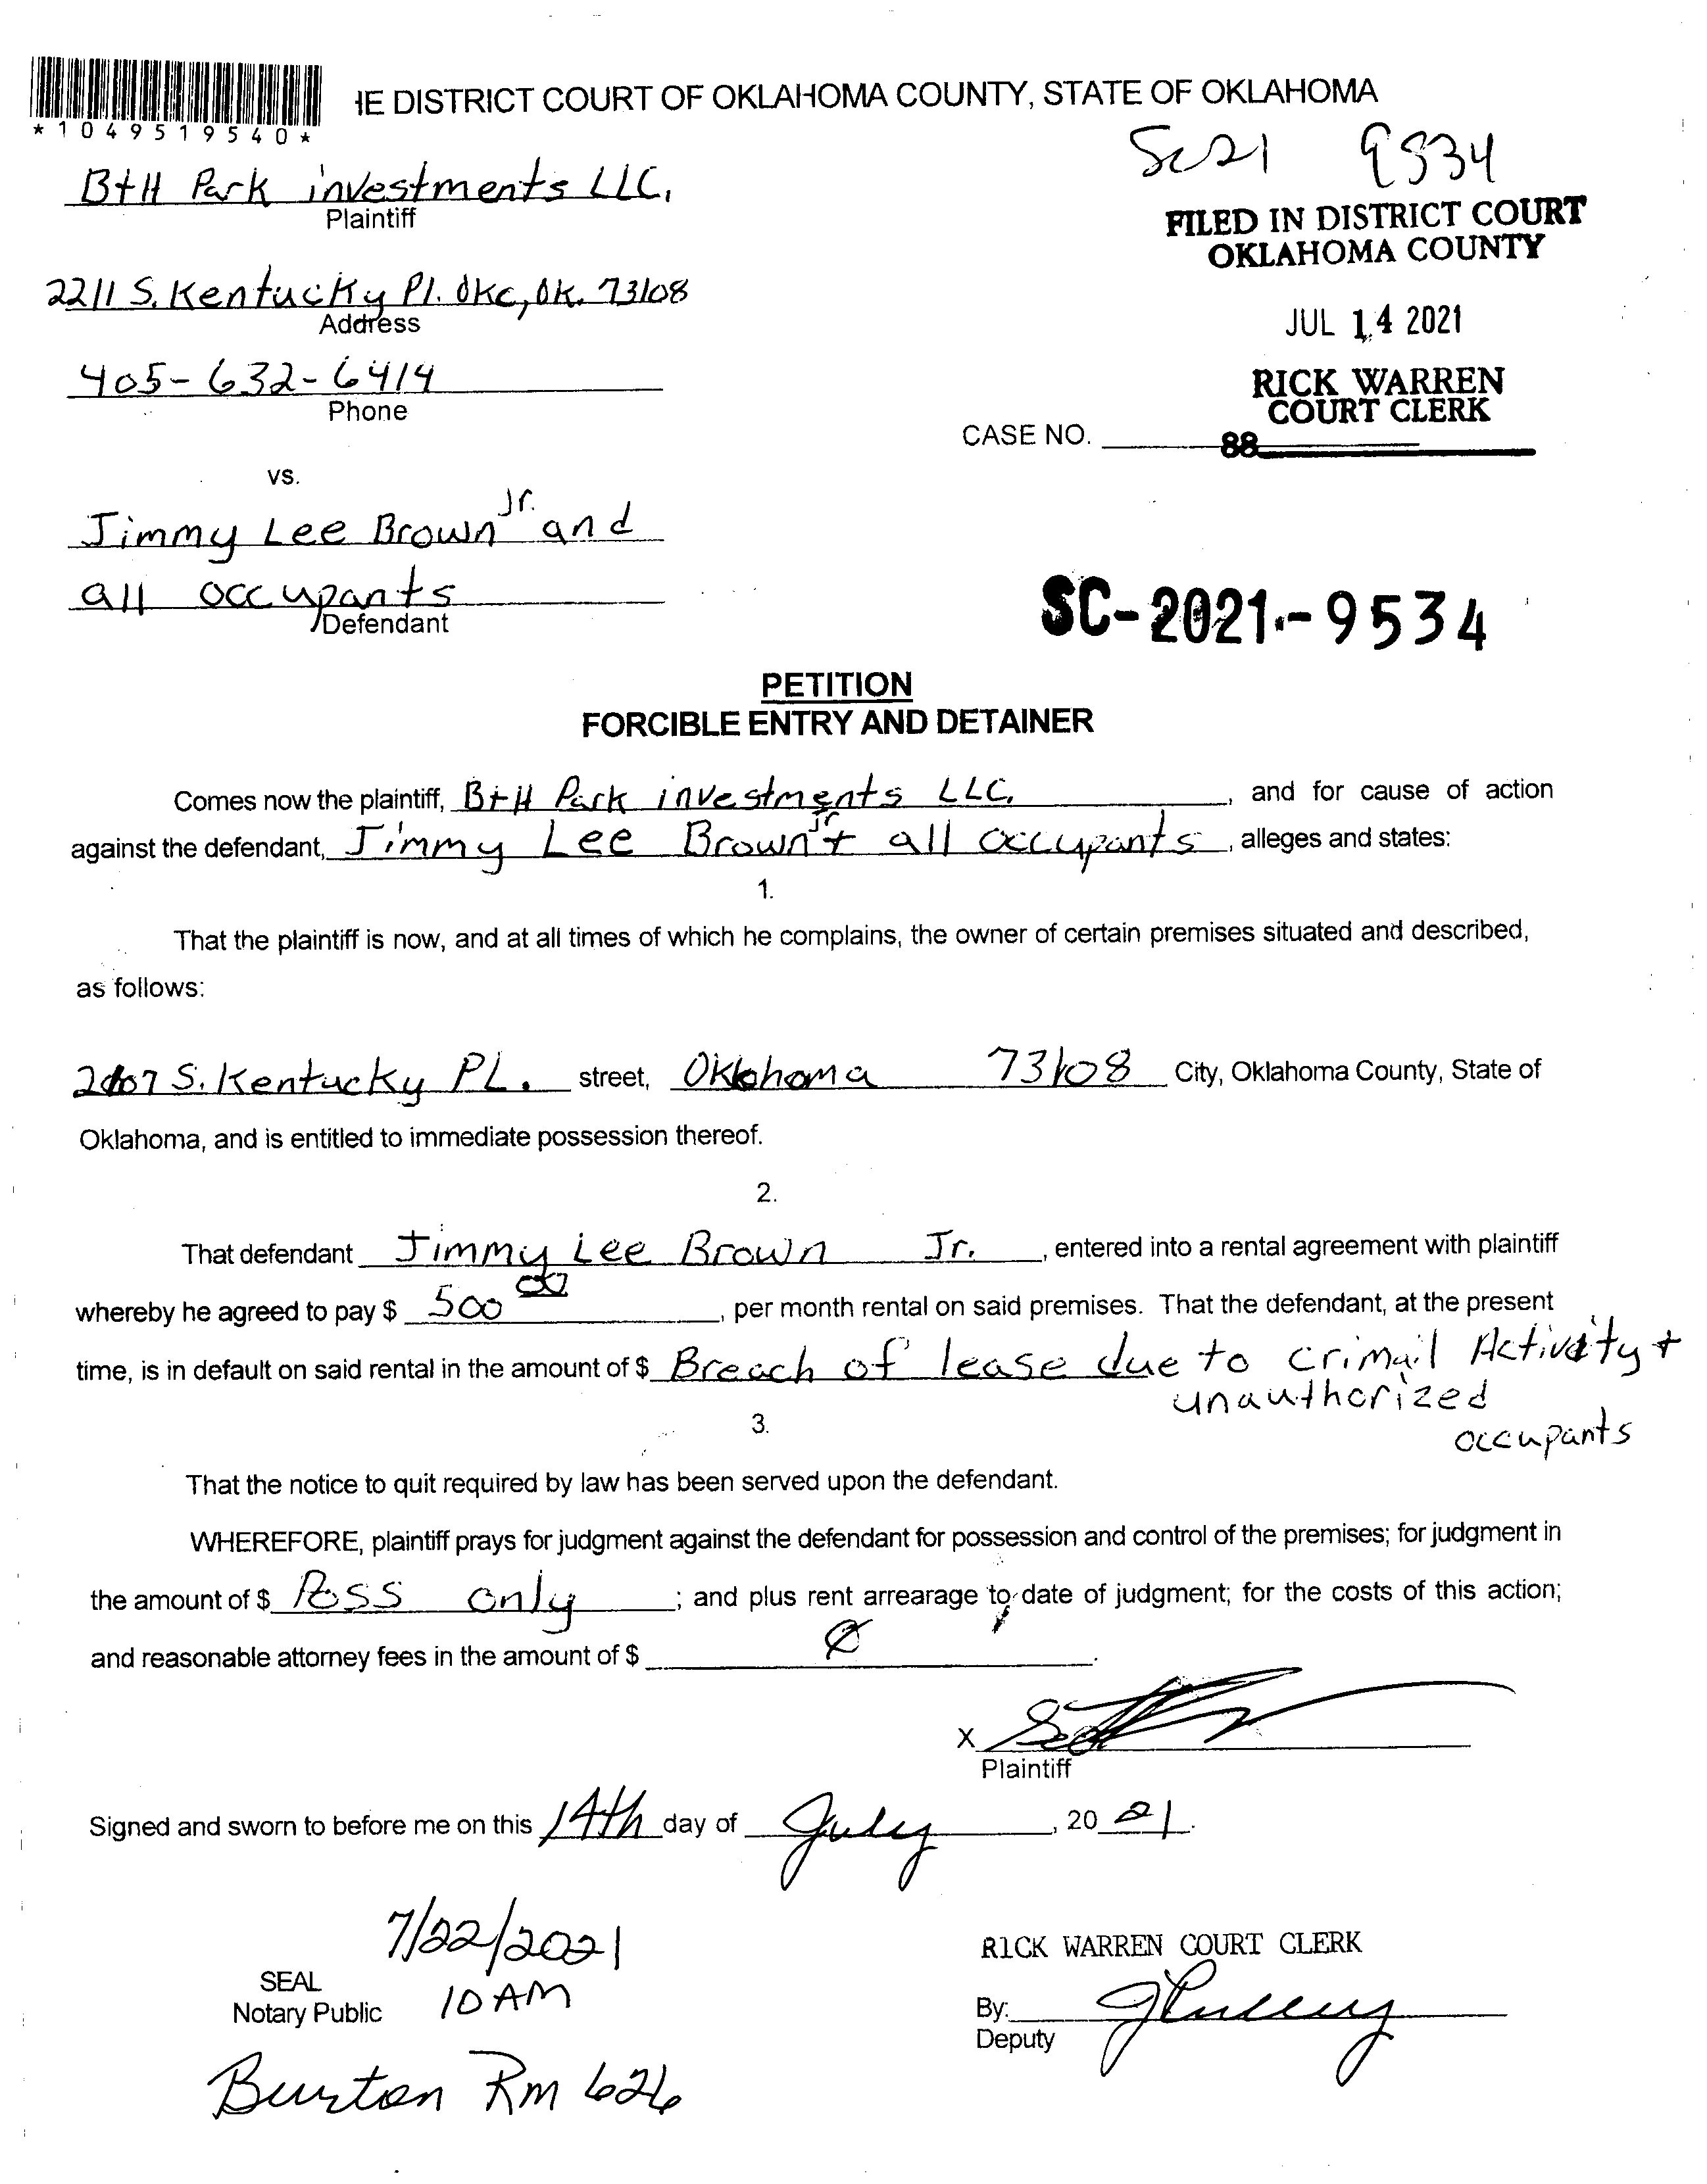 *1049519540*
HE DISTRICT COURT OF OKLAHOMA COUNTY, STATE OF OKLAHOMA
SC21 9534
B+H Park investments LLC,
Plaintiff
FILED IN DISTRICT COURT
OKLAHOMA COUNTY
2211 S. Kentucky Pl. OKC, OK. 73108
Address
JUL 14 2021
405-632-6414
Phone
RICK WARREN
COURT CLERK
CASE NO.
88
vs.
Jimmy Lee Brown Jr. and
all occupants
Defendant
SC-2021-9534
PETITION
FORCIBLE ENTRY AND DETAINER
Comes now the plaintiff, B+H Park investments LLC, , and for cause of action
against the defendant, Jimmy Lee Brown Jr + all occupants , alleges and states:
1.
That the plaintiff is now, and at all times of which he complains, the owner of certain premises situated and described,
as follows:
S. Kentucky PL. street, Oklahoma 73108 City, Oklahoma County, State of
Oklahoma, and is entitled to immediate possession thereof.
2.
That defendant Jimmy Lee Brown Jr. , entered into a rental agreement with plaintiff
whereby he agreed to pay $ 500 00 , per month rental on said premises. That the defendant, at the present
time, is in default on said rental in the amount of $ Breach of lease due to crimail Activity +
unauthorized
occupants
3.
That the notice to quit required by law has been served upon the defendant.
WHEREFORE, plaintiff prays for judgment against the defendant for possession and control of the premises; for judgment in
the amount of $ Poss only ; and plus rent arrearage to date of judgment; for the costs of this action;
and reasonable attorney fees in the amount of $ Ø .
X
Plaintiff
Signed and sworn to before me on this 14th day of July , 20 21 .
7/22/2021
RICK WARREN COURT CLERK
SEAL
Notary Public 10 AM
By:
Deputy
Burton Rm 626